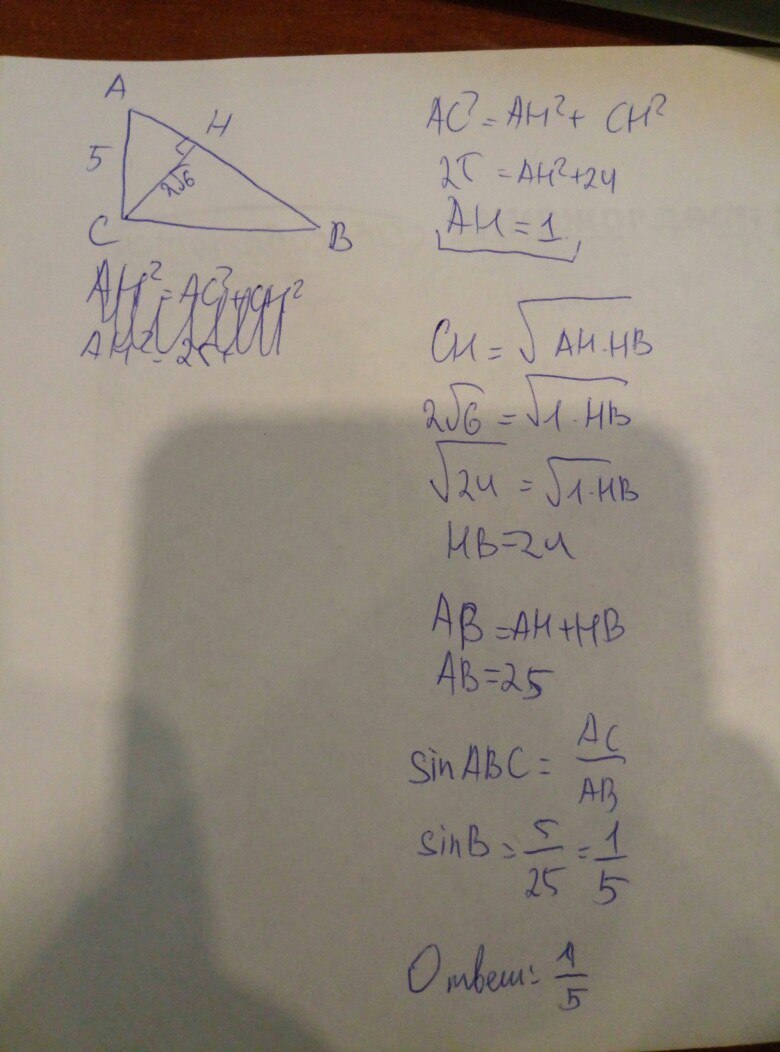 A
H
5
2√6
C
B
AH² = AC² + CH²
AH² = 25 +
AC² = AH² + CH²
25 = AH² + 24
AH = 1
CH = √AH·HB
2√6 = √1·HB
√24 = √1·HB
HB = 24
AB = AH + HB
AB = 25
sin ABC = AC/AB
sin B = 5/25 = 1/5
Ответ: 1/5